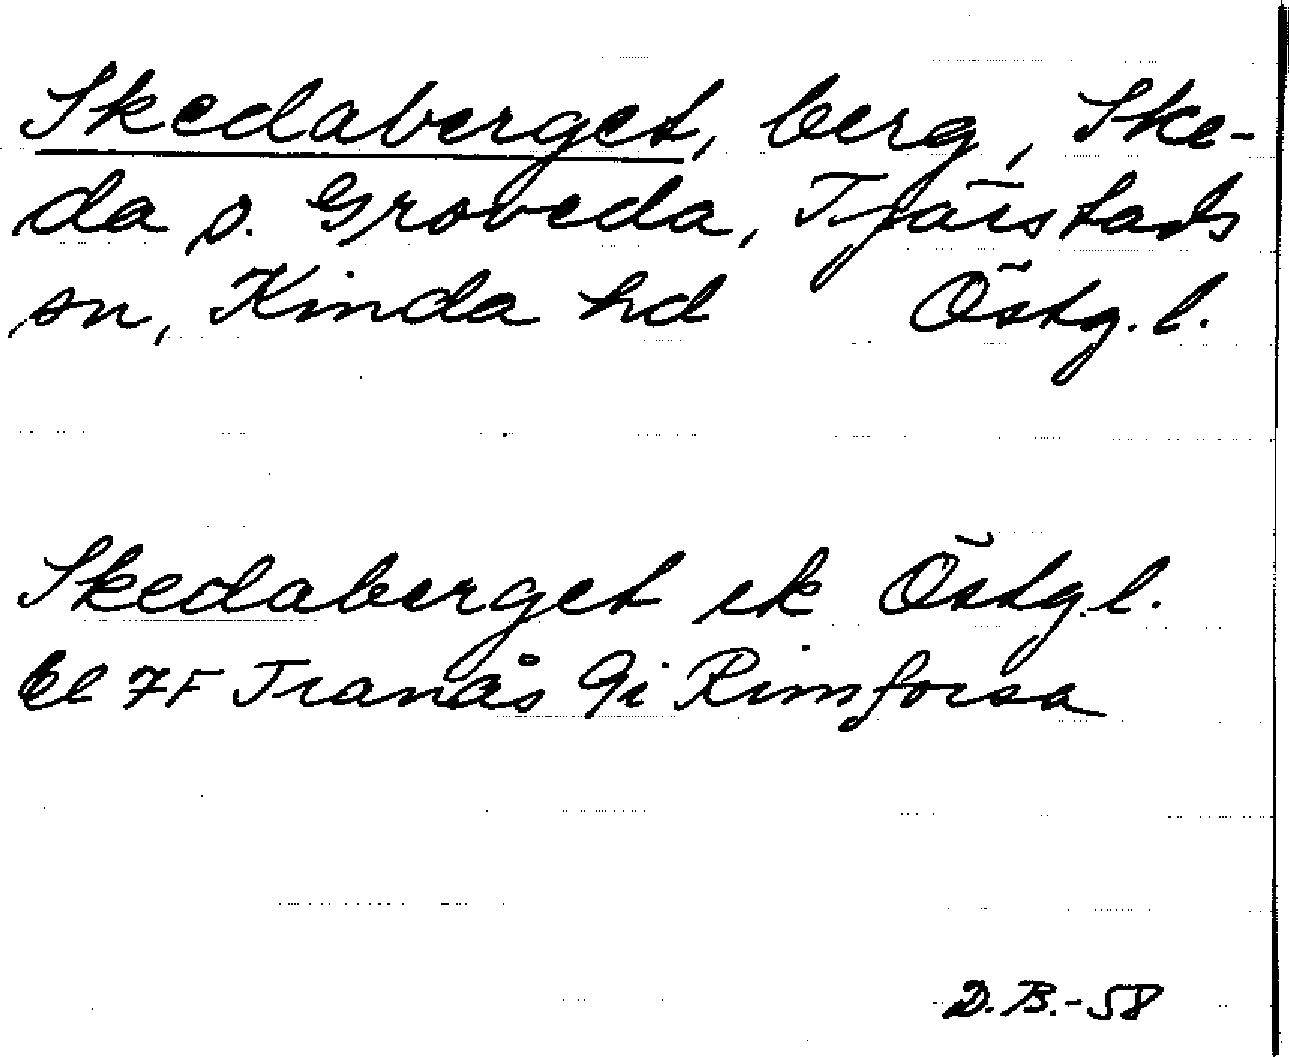 Skedaberget, berg, Ske-
da o. Groveda, Tjärstads
sn, Kinda hd Östg. l.
Skedaberget ek Östg. l.
bl 7F Tranås 9i Rimforsa
D.B.-58